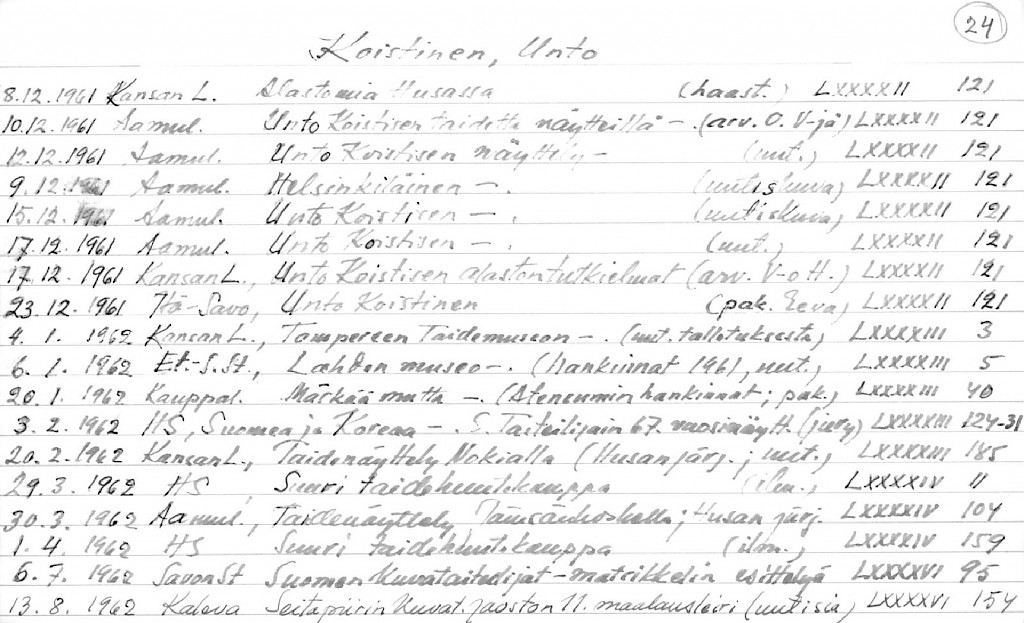 24
Koistinen, Unto
8.12.1961 Kansan L. Alastomia Husassa (haast.) LXXXXII 121
10.12.1961 Aamul. Unto Koistisen taidetta näytteillä - . (arv. O. V-jä) LXXXXII 121
12.12.1961 Aamul. Unto Koistisen näyttely - (uut.) LXXXXII 121
9.12.1961 Aamul. Helsinkiläinen - . (uutiskuva) LXXXXII 121
15.12.1961 Aamul. Unto Koistisen - . (uutiskuva) LXXXXII 121
17.12.1961 Aamul. Unto Koistisen - . (uut.) LXXXXII 121
17.12.1961 Kansan L., Unto Koistisen alastontutkielmat (arv. V-o H.) LXXXXII 121
23.12.1961 Itä-Savo, Unto Koistinen (pak. Eeva) LXXXXII 121
4.1.1962 Kansan L., Tampereen Taidemuseon - . (uut. talletuksesta) LXXXXIII 3
6.1.1962 Et.-S.St., Lahden museo - . (hankinnat 1961, uut.) LXXXXIII 5
20.1.1962 Kauppal. Märkää mutta - . (Ateneumin hankinnat; pak.) LXXXXIII 40
3.2.1962 HS, Suomea ja Koreaa - . S. Taiteilijain 67. vuosinäytt. (jury) LXXXXIII 124-31
20.2.1962 Kansan L., Taidenäyttely Nokialla (Husan järj.; uut.) LXXXXIII 185
29.3.1962 HS, Suuri taidehuutokauppa (ilm.) LXXXXIV 11
30.3.1962 Aamul., Taidenäyttely Jämsänkoskella; Husan järj. LXXXXIV 104
1.4.1962 HS Suuri taidehuutokauppa (ilm.) LXXXXIV 159
6.7.1962 Savon St Suomen Kuvataiteilijat-matrikkelin esittelyä LXXXXVI 95
13.8.1962 Kaleva Seitapiirin Kuvat. jaoston 11. maalausleiri (uutisia) LXXXXVI 154